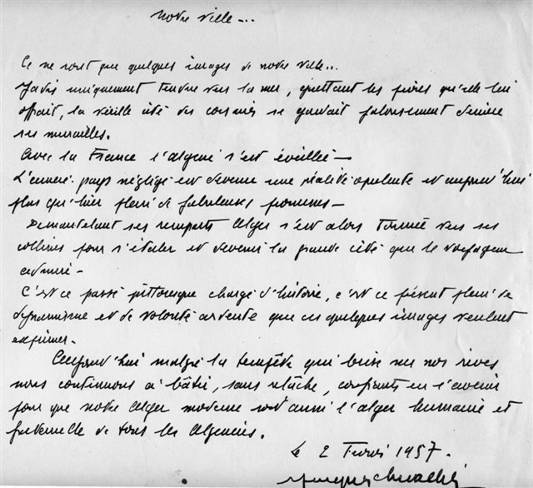 Notre ville...
Ce ne sont que quelques images de notre ville...
Jadis uniquement tendue vers la mer, guettant les proies qu'elle lui
offrait, la vieille cité des corsaires se gardait jalousement derrière
ses murailles.
Avec la France l'Algérie s'est éveillée —
L' pays négligé est devenu une réalité opulente et aujourd'hui
plus qu'hier plein de fabuleuses promesses —
Démantelant ses remparts Alger s'est alors tournée vers ses
collines pour s'étaler et devenir la grande cité que le voyageur
admire -
C'est ce passé pittoresque chargé d'histoire, c'est ce présent plein de
dynamisme et de volonté ardente que ces quelques images veulent
exprimer.
Aujourd'hui malgré la tempête qui brise sur nos rives
nous continuons à bâtir, sans relâche, confiants en l'avenir
pour que notre Alger moderne soit aussi l'Alger humaine et
fraternelle de tous les Algériens.
le 2 1957.
Jacques Chevallier